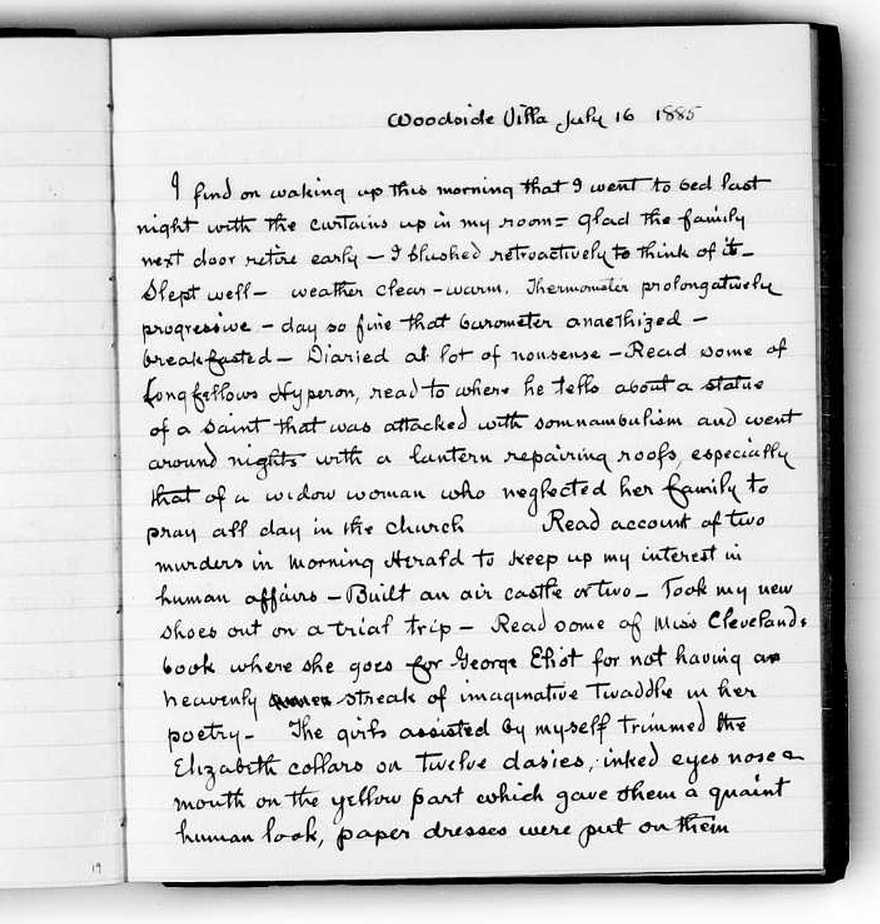 Woodside Villa July 16 1885
I find on waking up this morning that I went to bed last
night with the curtains up in my room = glad the family
next door retire early — I blushed retroactively to think of it —
Slept well — weather clear - warm. Thermometer prolongatively
progressive - day so fine that barometer anaethized —
breakfasted — Diaried a lot of nonsense — Read some of
Longfellows Hyperon, read to where he tells about a statue
of a saint that was attacked with somnambulism and went
around nights with a lantern repairing roofs, especially
that of a widow woman who neglected her family to
pray all day in the church Read account of two
murders in Morning Herald to keep up my interest in
human affairs — Built an air castle or two — Took my new
shoes out on a trial trip — Read some of Miss Clevelands
book where she goes for George Eliot for not having a
heavenly streak of imaginative twaddle in her
poetry - The girls assisted by myself trimmed the
Elizabeth collars on twelve dasies, inked eyes nose &
mouth on the yellow part which gave them a quaint
human look, paper dresses were put on them
19